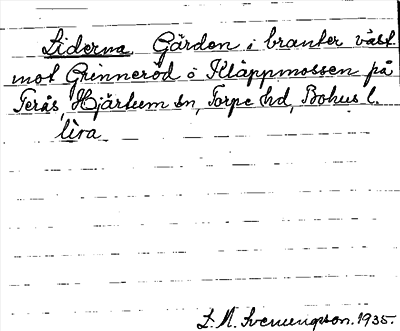 Liderna Gården i branter väst
mot Grinneröd o Kläppmossen på
Terås, Hjärtum sn, Torpe hd, Bohus l.
lira
L. M. Svenungsson. 1935.